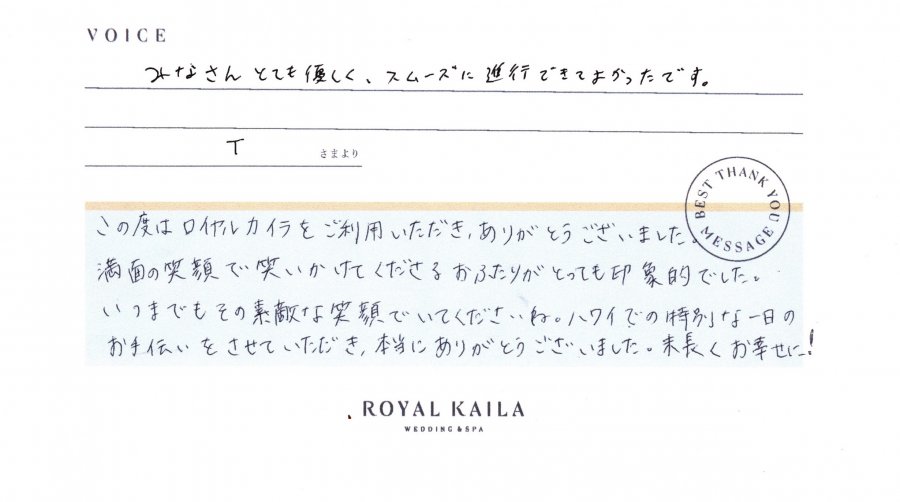 VOICE
みなさんとても優しく、スムーズに進行できてよかったです。
T さまより
BEST THANK YOU MESSAGE
この度はロイヤルカイラをご利用いただき、ありがとうございました。
満面の笑顔で笑いかけてくださるおふたりがとっても印象的でした。
いつまでもその素敵な笑顔でいてくださいね。ハワイでの特別な一日の
お手伝いをさせていただき、本当にありがとうございました。末長くお幸せに!
ROYAL KAILA
WEDDING & SPA